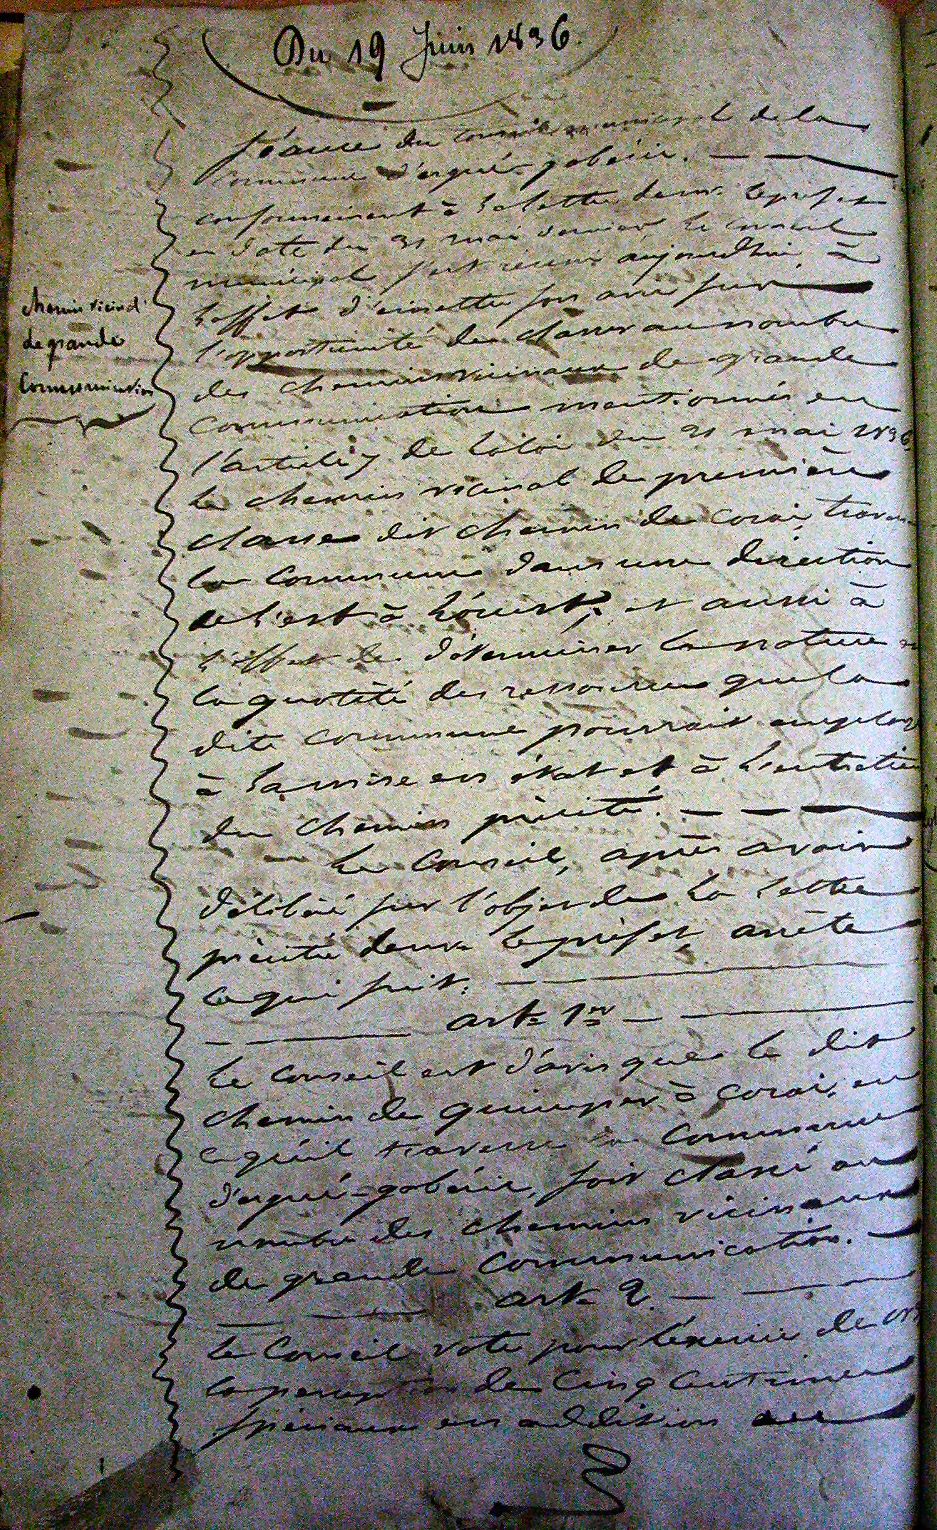 Du 19 Juin 1836.
Séance du conseil municipal de la
commune d'ergué-gobéric.
conformément à la lettre de mr le préfet
en date du 31 mai dernier, le conseil
municipal s'est réuni aujourdhui, à
l'effet d'émettre son avis sur
l'opportunité de classer au nombre
chemin vicinal
de grande
communication
des chemins vicinaux de grande
communication mentionnés en
l'article 7 de la loi du 21 mai 1836
le chemin vicinal de première
classe dit chemin de corai,
la commune dans une direction
de l'est à l'ouest, et aussi à
l'effet de déterminer la nature
la quotité des ressources que la
dite commune pourrait
à la mise en état et à l'entretien
du chemin précité.
Le Conseil, après avoir
délibéré sur l'objet de la lettre
précitée de mr le préfet, arrête
ce qui suit:
art. 1er
Le conseil est d'avis que le dit
chemin de quimper à corai, en
ce qu'il traverse la commune
d'ergué-gobéric, soit classé au
nombre des chemins vicinaux
de grande communication.
art. 2.
Le Conseil vote pour l'exercice de
la perception de cinq centimes
spéciaux en addition au